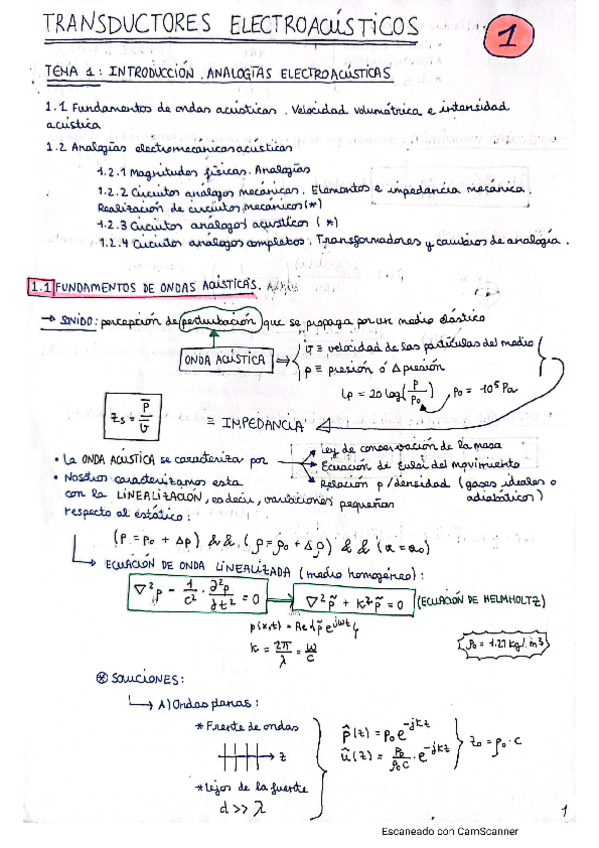 TRANSDUCTORES ELECTROACÚSTICOS
1
TEMA 1: INTRODUCCIÓN. ANALOGÍAS ELECTROACÚSTICAS
1.1 Fundamentos de ondas acústicas. Velocidad volumétrica e intensidad
acústica
1.2 Analogías electromecánicasacústicas
1.2.1 Magnitudes físicas. Analogías
1.2.2 Circuitos análogos mecánicos. Elementos e impedancia mecánica.
Realización de circuitos mecánicos (*)
1.2.3 Circuitos análogos acústicos (*)
1.2.4 Circuitos análogos completos. Transformadores y cambios de analogía.
1.1 FUNDAMENTOS DE ONDAS ACÚSTICAS.
→ SONIDO: percepción de perturbación que se propaga por un medio elástico
ONDA ACÚSTICA ⇒ { v ≡ velocidad de las partículas del medio
p ≡ presión ó Δpresión
Lp = 20 log(p/p0) p0 = 10⁵ Pa
Zs = p/v ≡ IMPEDANCIA
• La ONDA ACÚSTICA se caracteriza por → Ley de conservación de la masa
→ Ecuación de Euler del movimiento
→ Relación p/densidad (gases ideales o adiabáticos)
• Nosotros caracterizamos esta
con la LINEALIZACIÓN, es decir, variaciones pequeñas
respecto al estático:
(p = p0 + Δp) && (ρ = ρ0 + Δρ) && (u = u0)
→ ECUACIÓN DE ONDA LINEALIZADA (medio homogéneo):
∇²p - 1/c² · ∂²p/∂t² = 0 → ∇²p̃ + k²p̃ = 0 (ECUACIÓN DE HELMHOLTZ)
p(x,t) = Re{p̃ e^jωt}
k = 2π/λ = ω/c
ρ0 = 1.21 kg/m3
⊛ SOLUCIONES:
→ A) Ondas planas:
* Frente de ondas
z
* Lejos de la fuente
d >> λ
p̂(z) = p0 e^-jkz
û(z) = p0/ρ0c · e^-jkz
z0 = ρ0 · c
1
Escaneado con CamScanner